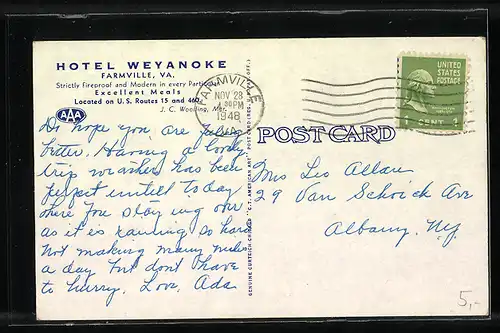 HOTEL WEYANOKE
FARMVILLE, VA.
Strictly Fireproof and Modern in every Particular
Excellent Meals
Located on U.S. Routes 15 and 460
J. C. Woodling, Mgr.
AAA
FARMVILLE
NOV 28
PM
1948
VA.
UNITED
STATES
POSTAGE
1 CENT 1
POST CARD
GENUINE CURTEICH-CHICAGO "C.T. AMERICAN ART" POST CARD (REG. U.S. PAT. OFF.)
Do hope you are feeling
better. Having a lovely
trip weather has been
perfect until to day
here you stay ing over
as it is raining so hard
Not making many miles
a day but dont have
to hurry. Love, Ada
Mrs Leo Allan
29 Van Schoick Ave
Albany, N.Y.
5,-